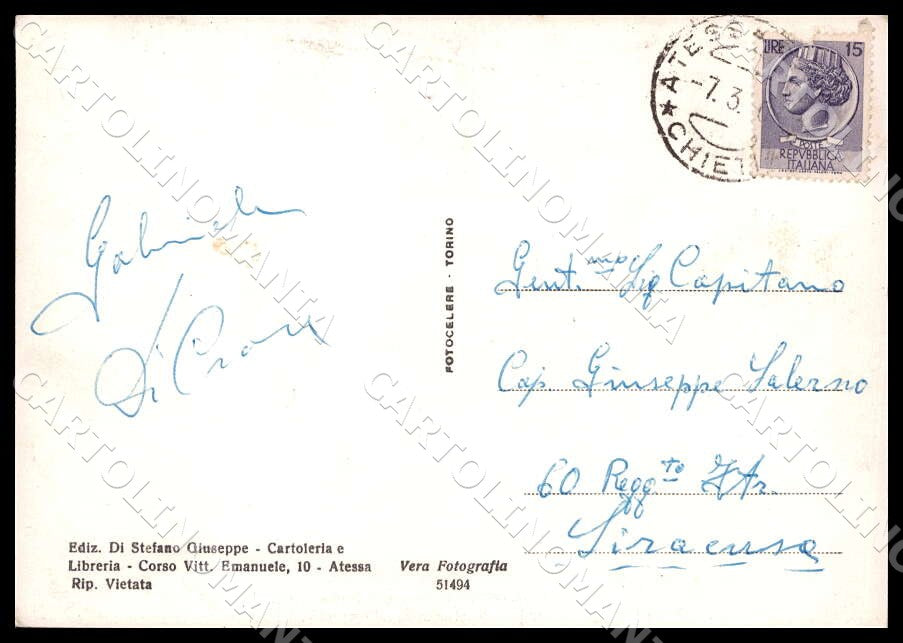 ATESSA
-7.3
* CHIETI
LIRE 15
POSTE
REPVBBLICA
ITALIANA
Gabriele
Di Croce
FOTOCELERE - TORINO
Gent.mo Sig Capitano
Cap Giuseppe Salerno
60 Regg.to Ftr.
Siracusa
Ediz. Di Stefano Giuseppe - Cartoleria e
Libreria - Corso Vitt. Emanuele, 10 - Atessa
Rip. Vietata
Vera Fotografia
51494
CARTOLINOMANIA